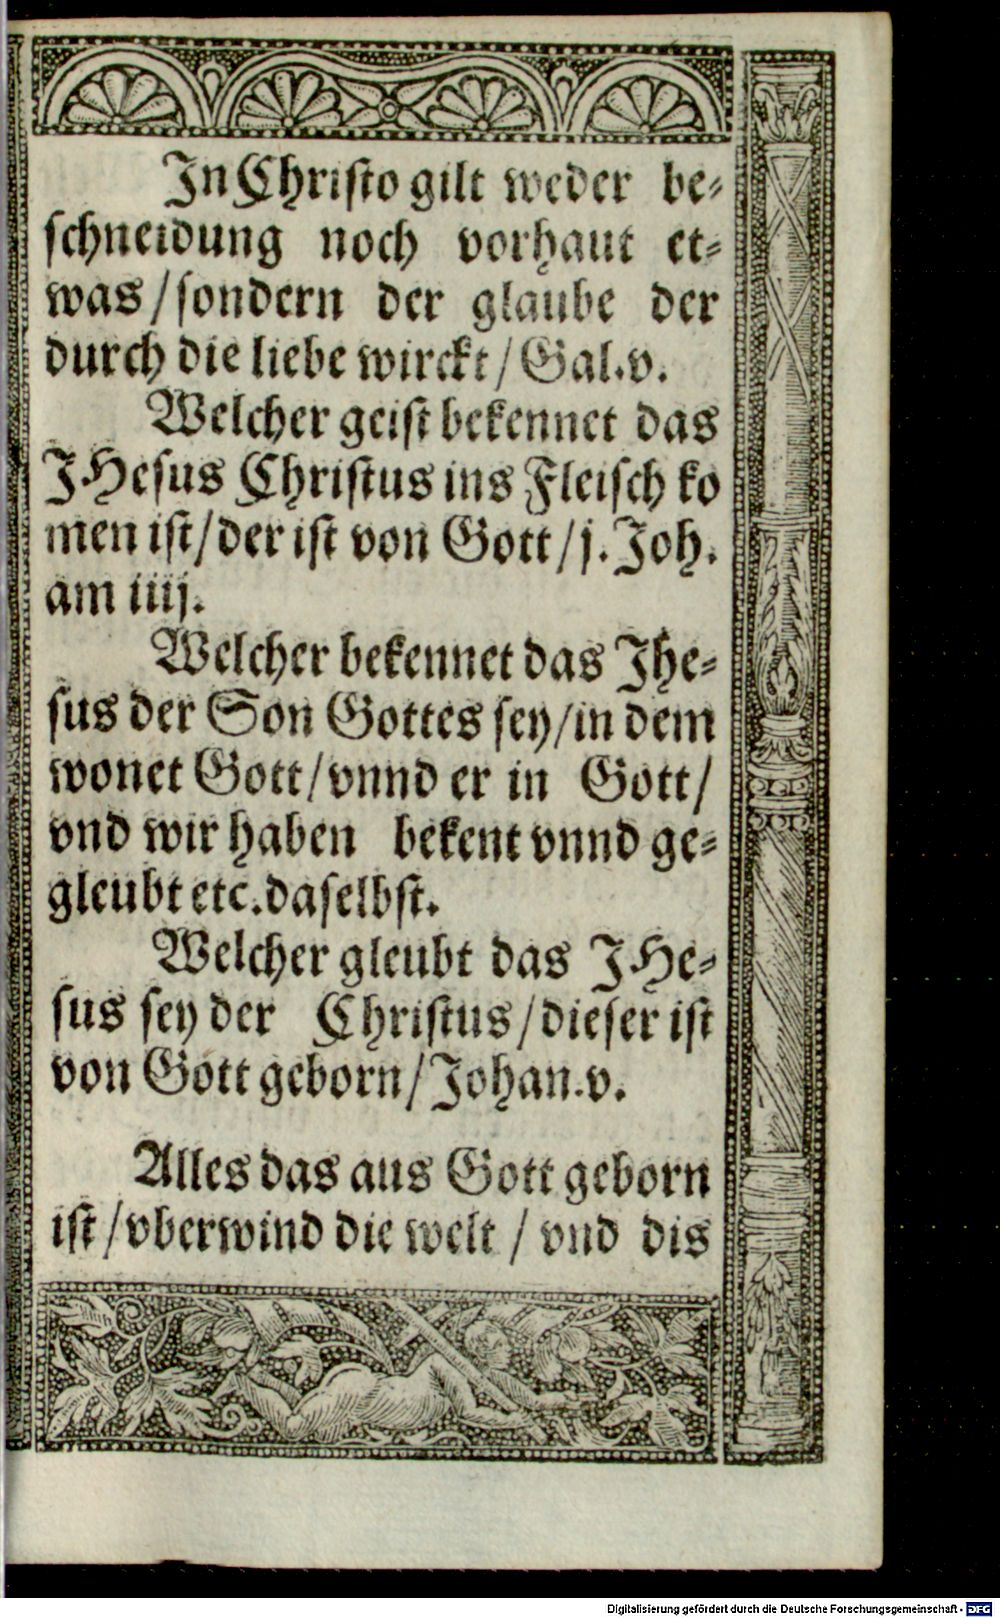 In Christo gilt weder be⸗
schneidung noch vorhaut et⸗
was / sondern der glaube der
durch die liebe wirckt / Gal. v.
Welcher geist bekennet das
JHesus Christus ins Fleisch ko
men ist / der ist von Gott / j. Joh.
am iiij.
Welcher bekennet das Jhe⸗
sus der Son Gottes sey / in dem
wonet Gott / vnnd er in Gott /
vnd wir haben bekent vnnd ge⸗
gleubt etc. daselbst.
Welcher gleubt das JHe⸗
sus sey der Christus / dieser ist
von Gott geborn / Johan. v.
Alles das aus Gott geborn
ist / vberwind die welt / vnd dis
Digitalisierung gefördert durch die Deutsche Forschungsgemeinschaft - DFG